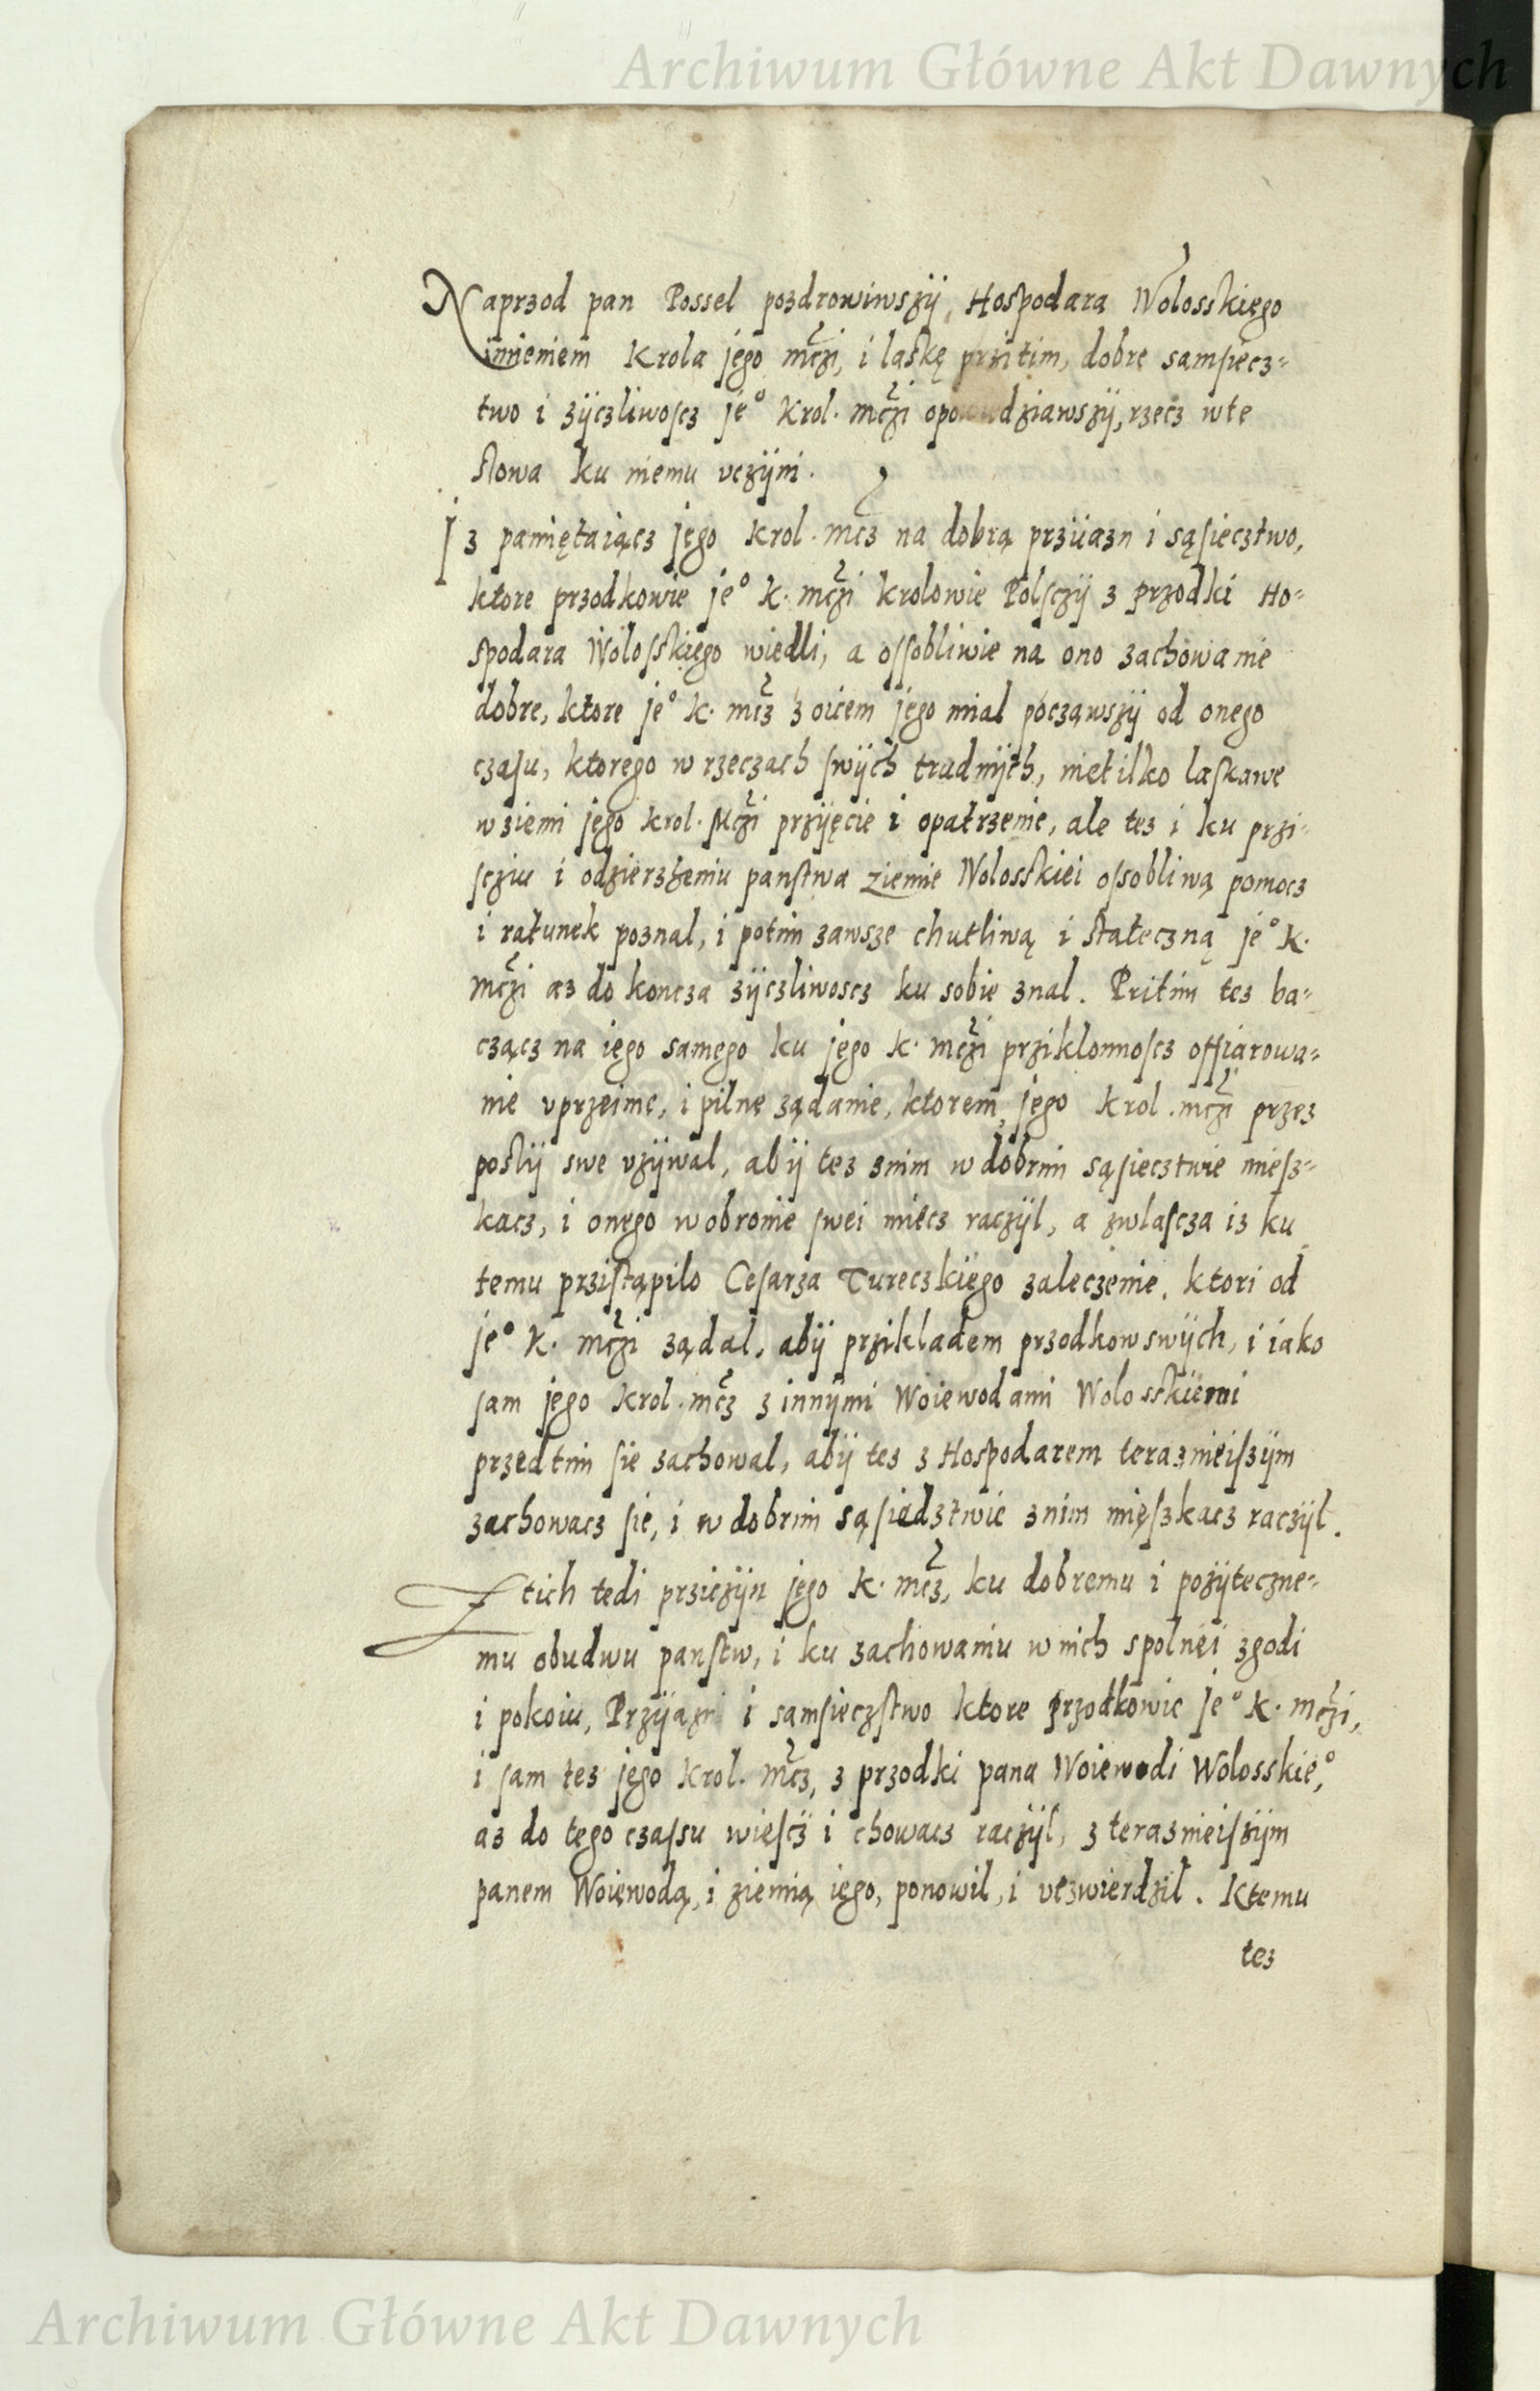 Archiwum Główne Akt Dawnych
Naprzod pan Possel pozdrowiwszÿ, Hospodara Wolosskiego
imieniem Krola jego mczi, i laskę przitim, dobre samsiecz-
two i zÿczliwoscz je° Krol. mczi opowiedziawszÿ, rzecz wte
slowa ku niemu vczÿni.
Iz pamiętaiącz jego Krol. mcz na dobrą przÿiazn i sąsiecztwo,
ktore przodkowie je° K. mczi krolowie Polsczÿ z przodki Ho-
spodara Wolosskiego wiedli, a ossobliwie na ono zachowanie
dobre, ktore je° K. mcz z oicem jego mial począwszÿ od onego
czasu, ktorego w rzeczach swÿch trudnÿch, nietilko laskawe
w ziemi jego Krol. Mczi przÿięcie i opatrzenie, ale tez i ku przi-
scziu i odzierzżeniu panstwa ziemie Wolosskiei ossobliwą pomocz
i ratunek poznal, i potim zawsze chutliwą i stateczną je° K.
mczi az do koncza zÿczliwoscz ku sobie znal. Pritim tez ba-
czącz na iego samego ku jego K. mczi prziklonnoscz offiarowa-
nie vprzeime, i pilne ządanie, ktorem jego Krol. mczi przez
poslÿ swe vzÿwal, abÿ tez znim w dobrim sąsiecztwie miesz-
kacz, i onego w obronie swei miecz raczÿl, a zwlascza iz ku
temu przistąpilo Cesarza Tureczkiego zaleczenie, ktori od
je° K. mczi ządal, abÿ przikladem przodkow swÿch, i iako
sam jego Krol. mcz z innÿmi Woiewodami Wolosskiemi
przedtim sie zachowal, abÿ tez z Hospodarem terazmieiszÿm
zachowacz sie, i w dobrim sąsiedztwie znim mięszkacz raczÿl.
Z tich tedi prziczÿn jego K. mcz, ku dobremu i pozÿteczne-
mu obudwu panstw, i ku zachowaniu w nich spolnęi zgodi
i pokoiu, Przÿiazn i samsieczstwo ktore przodkowie je° K. mczi,
i sam tez jego Krol. mcz, z przodki pana Woiewodi Wolosskie°,
az do tego czassu wiesčz i chowacz raczÿl, z terazmieiszÿm
panem Woiewodą, i ziemią iego, ponowil, i vtzwierdzil. Ktemu
tez
Archiwum Główne Akt Dawnych